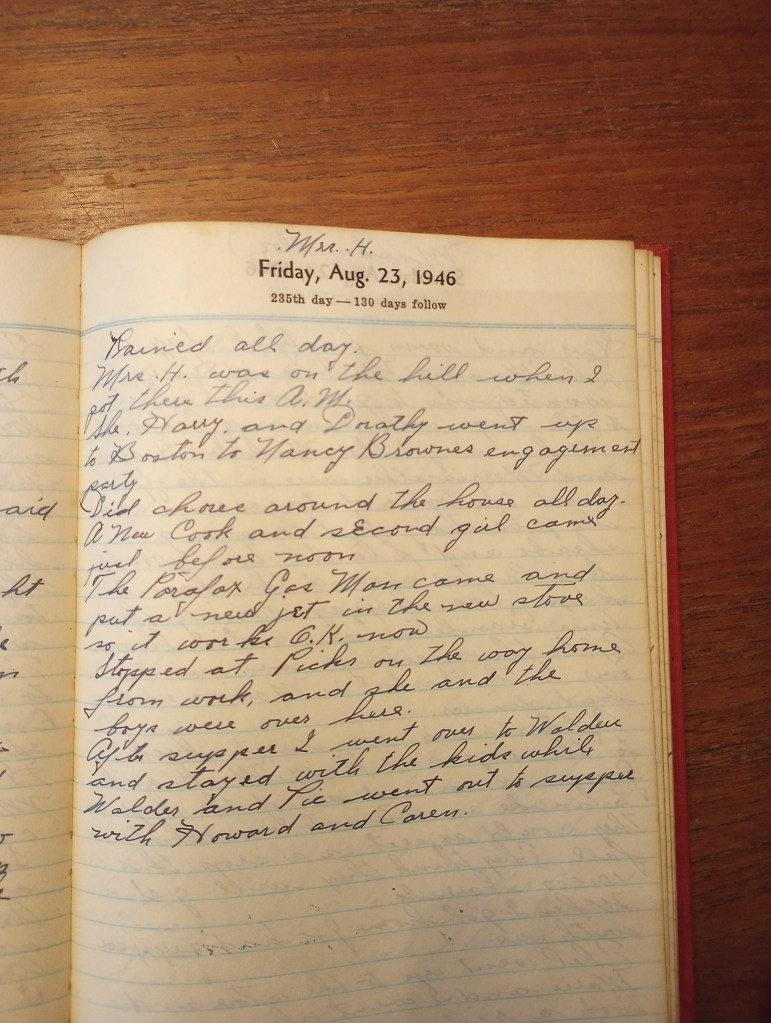 Mrs. H.
Friday, Aug. 23, 1946
235th day — 130 days follow
Rained all day.
Mrs. H. was on the hill when I
got there this A.M.
She, Harry, and Dorathy went up
to Boston to Nancy Brownes engagement
party
Did chores around the house all day.
A New Cook and second girl came
just before noon
The Parafax Gas Man came and
put a new jet in the new stove
so it works O.K. now
Stopped at Picks on the way home
from work, and she and the
boys were over here.
After supper I went over to Waldens
and stayed with the kids while
Walden and Pic went out to supper
with Howard and Caren.
aid
ht